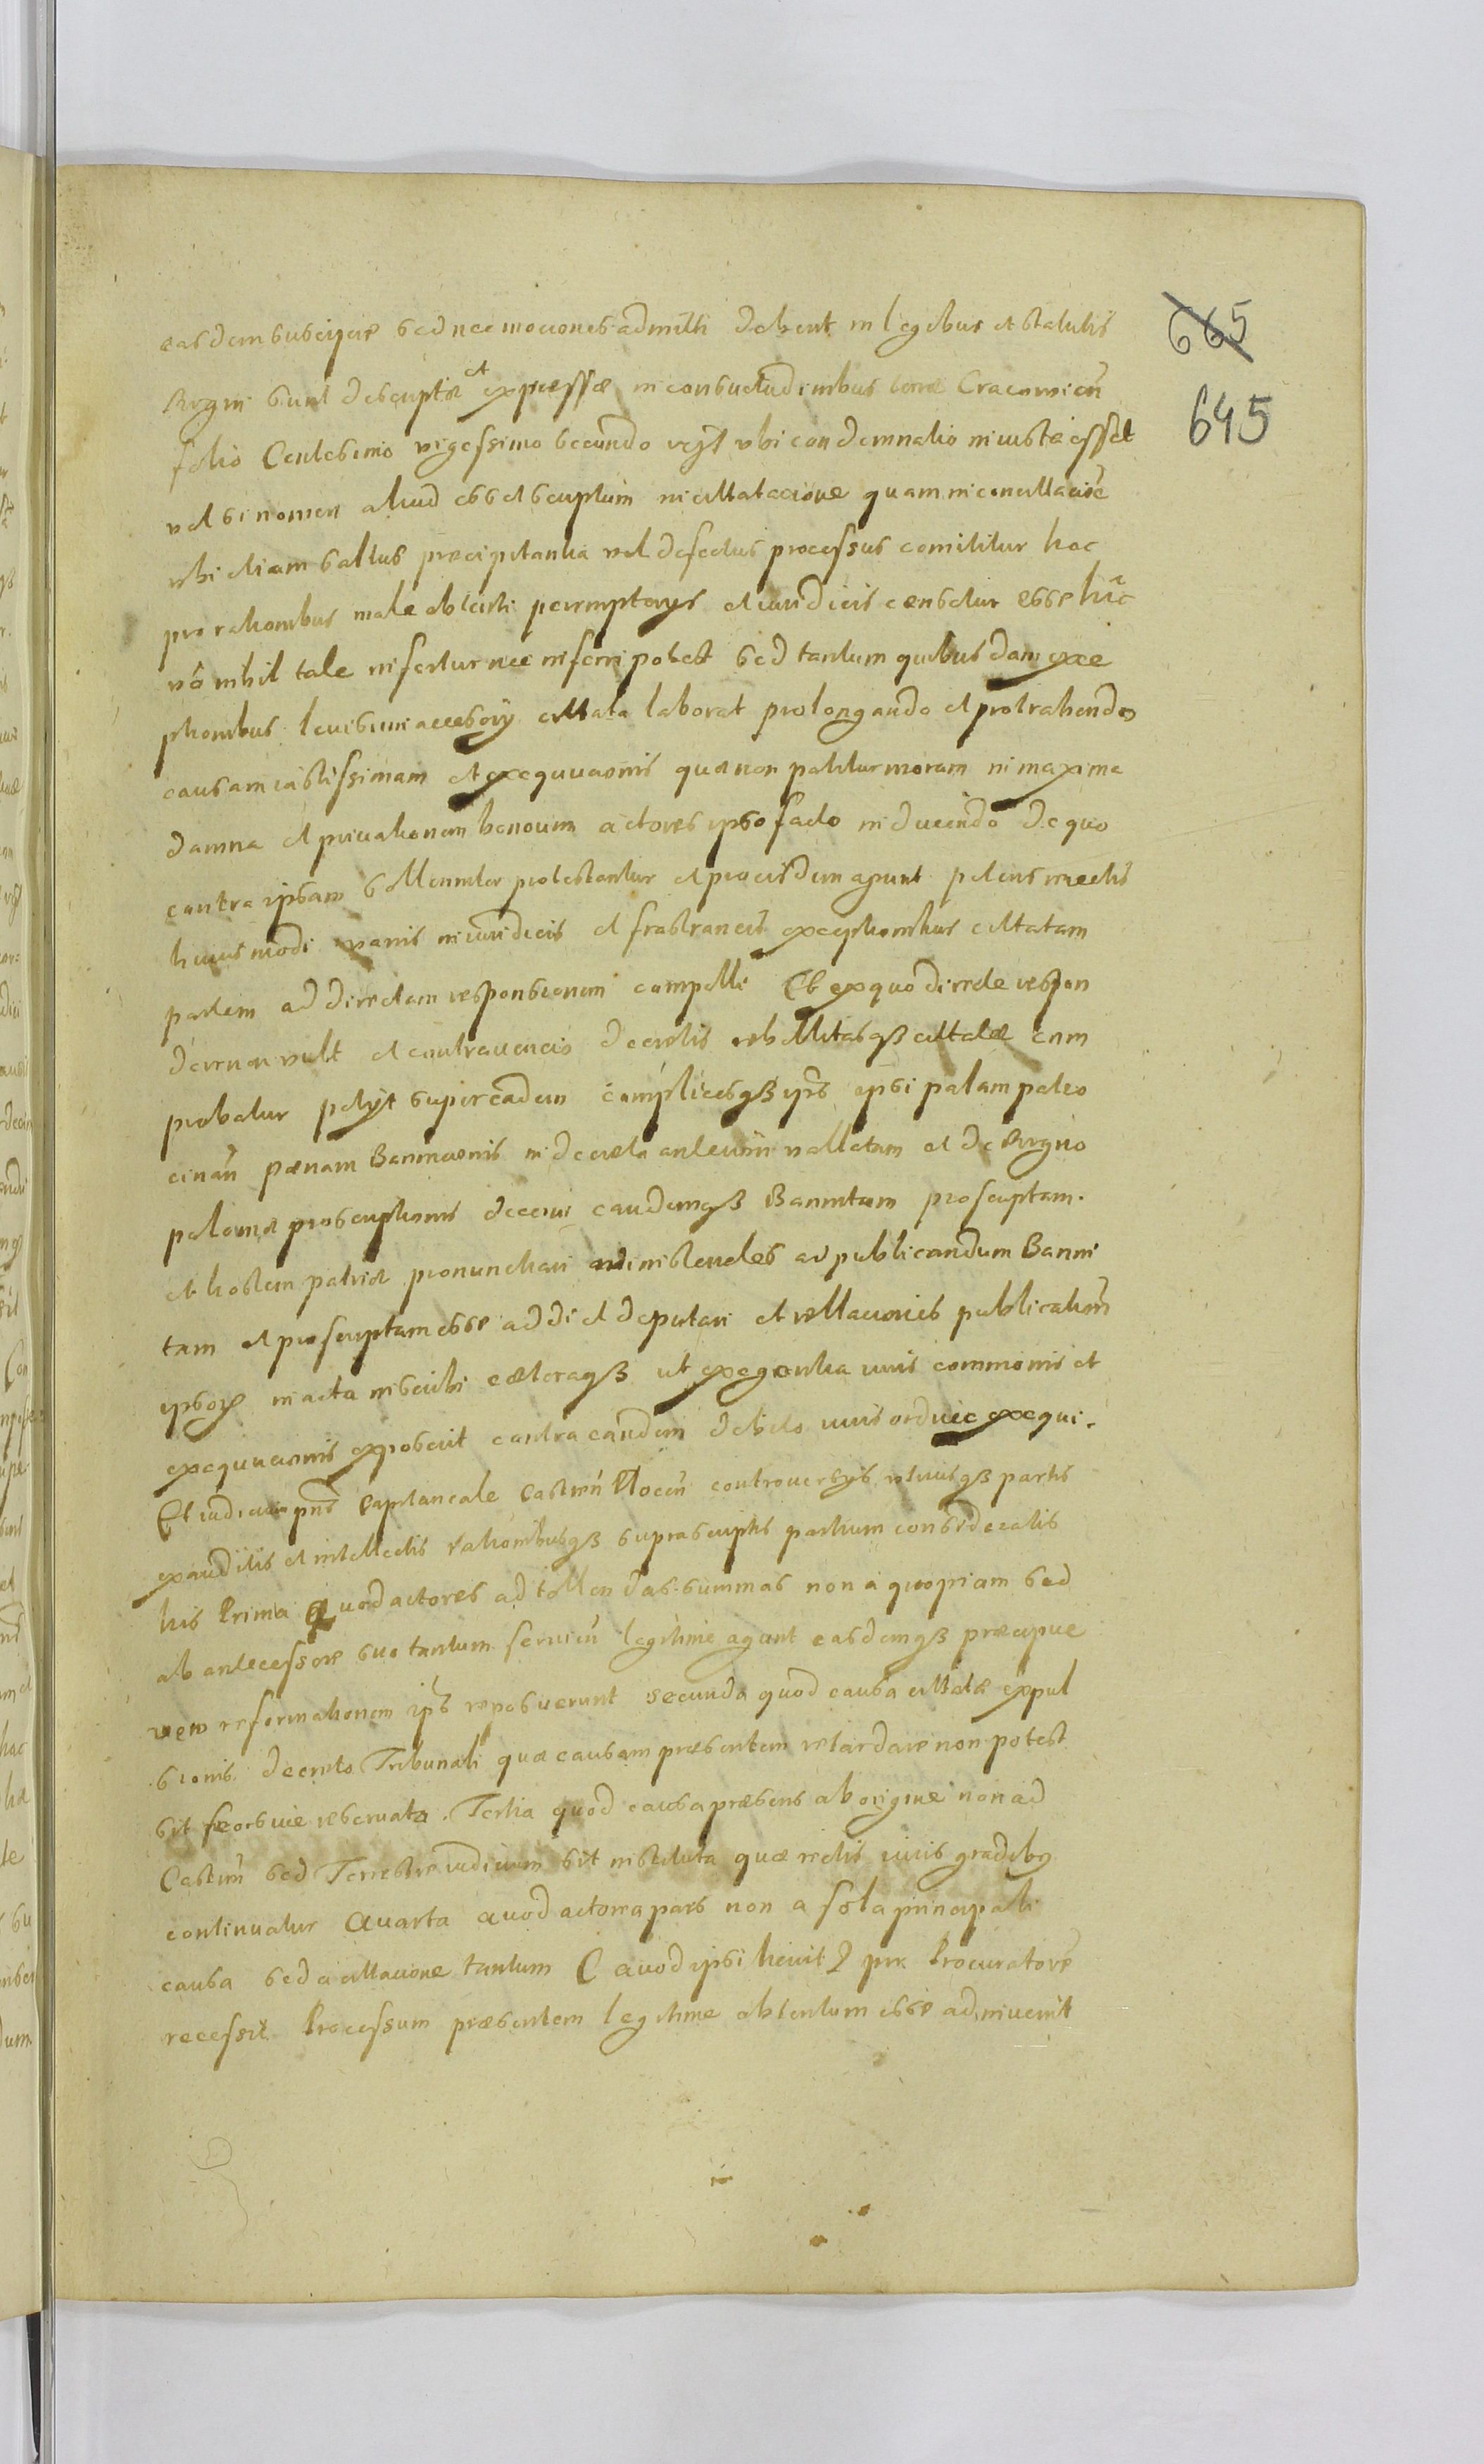 easdem suscipere sed nec mociones admitti debent in legibus et statutis
Regni sunt descriptæ et expressæ in consuetudinibus terræ Cracovien̄
folio Centesimo vigessimo secundo vbi condemnatio iniusta esset
vel si nomen aliud esset scriptum in citatacione quam in concitacio͠e
vbi etiam saltus præcipitantia vel defectus processus comittitur hoc
pro rationibus male obtenti peremptorys et iuridicis censetur esse hic̃
vō nihil tale infertur nec inferri potest sed tantum quibusdam exce
ptionibus levissimi accessorÿ citata laborat prolongando et protrahendo
causam iustissimam et exequucionis quæ non patitur moram in maxima
damna et privationem bonorum actores ipso facto inducendo de quo
contra ipsam sollenniter protestantur et pro eisdem agunt petens reiectis
huiusmodi vanis iniuridicis et frustraneis exceptionibus citatam
partem ad directam responsionem compelli Et ex quo directe respon
dere non vult et contravencio decretis rebellitasqz citatæ cum
probatur petÿt super eadem complicibusqz ips̄ ipsi palam patro
cinan̄ pænam Bannicionis in decreto anteriori vallatam et de Regno
poloniæ proscriptionis decerni eandemqz Bannitam proscriptam.
et hostem patriæ pronunctiari ministeriales ad publicandum Banni
tam et proscriptam esse addi et deputari et rellaciones publication̄
ipsorꝫ in acta inscribi cæteraqz ut exegentia iuris communis et
exequucionis exposcit contra eandem debito iuris ordine exequi.
Et iudicium pn̄s Capitaneale Castren̄ Plocen̄ controversÿs vtriusqz partis
exauditis et intellectis rationibusqz suprascriptis partium consideratis
his Prima Quod actores ad tollendas summas non a quopiam sed
ab antecessore suo tantum servien̄ legitime agunt easdemqz præcipue
vero reformationem ips̄ reposuerunt secunda quod causa citatæ expul
sionis decreto Tribunali quæ causam præsentem retardare non potest
sit seorsive reservata. Tertia quod causa præsens ab origine non ad
Castren̄ sed Terrestre iudicium sit instituta quæ rectis iuris gradibꝫ
continuatur Quarta quod actorea pars non a sola principali
causa sed a citacione tantum ( quod ipsi licuit ) per Procuratorē
recessit Processum præsentem legitime obtentum esse adinvenit
665
645